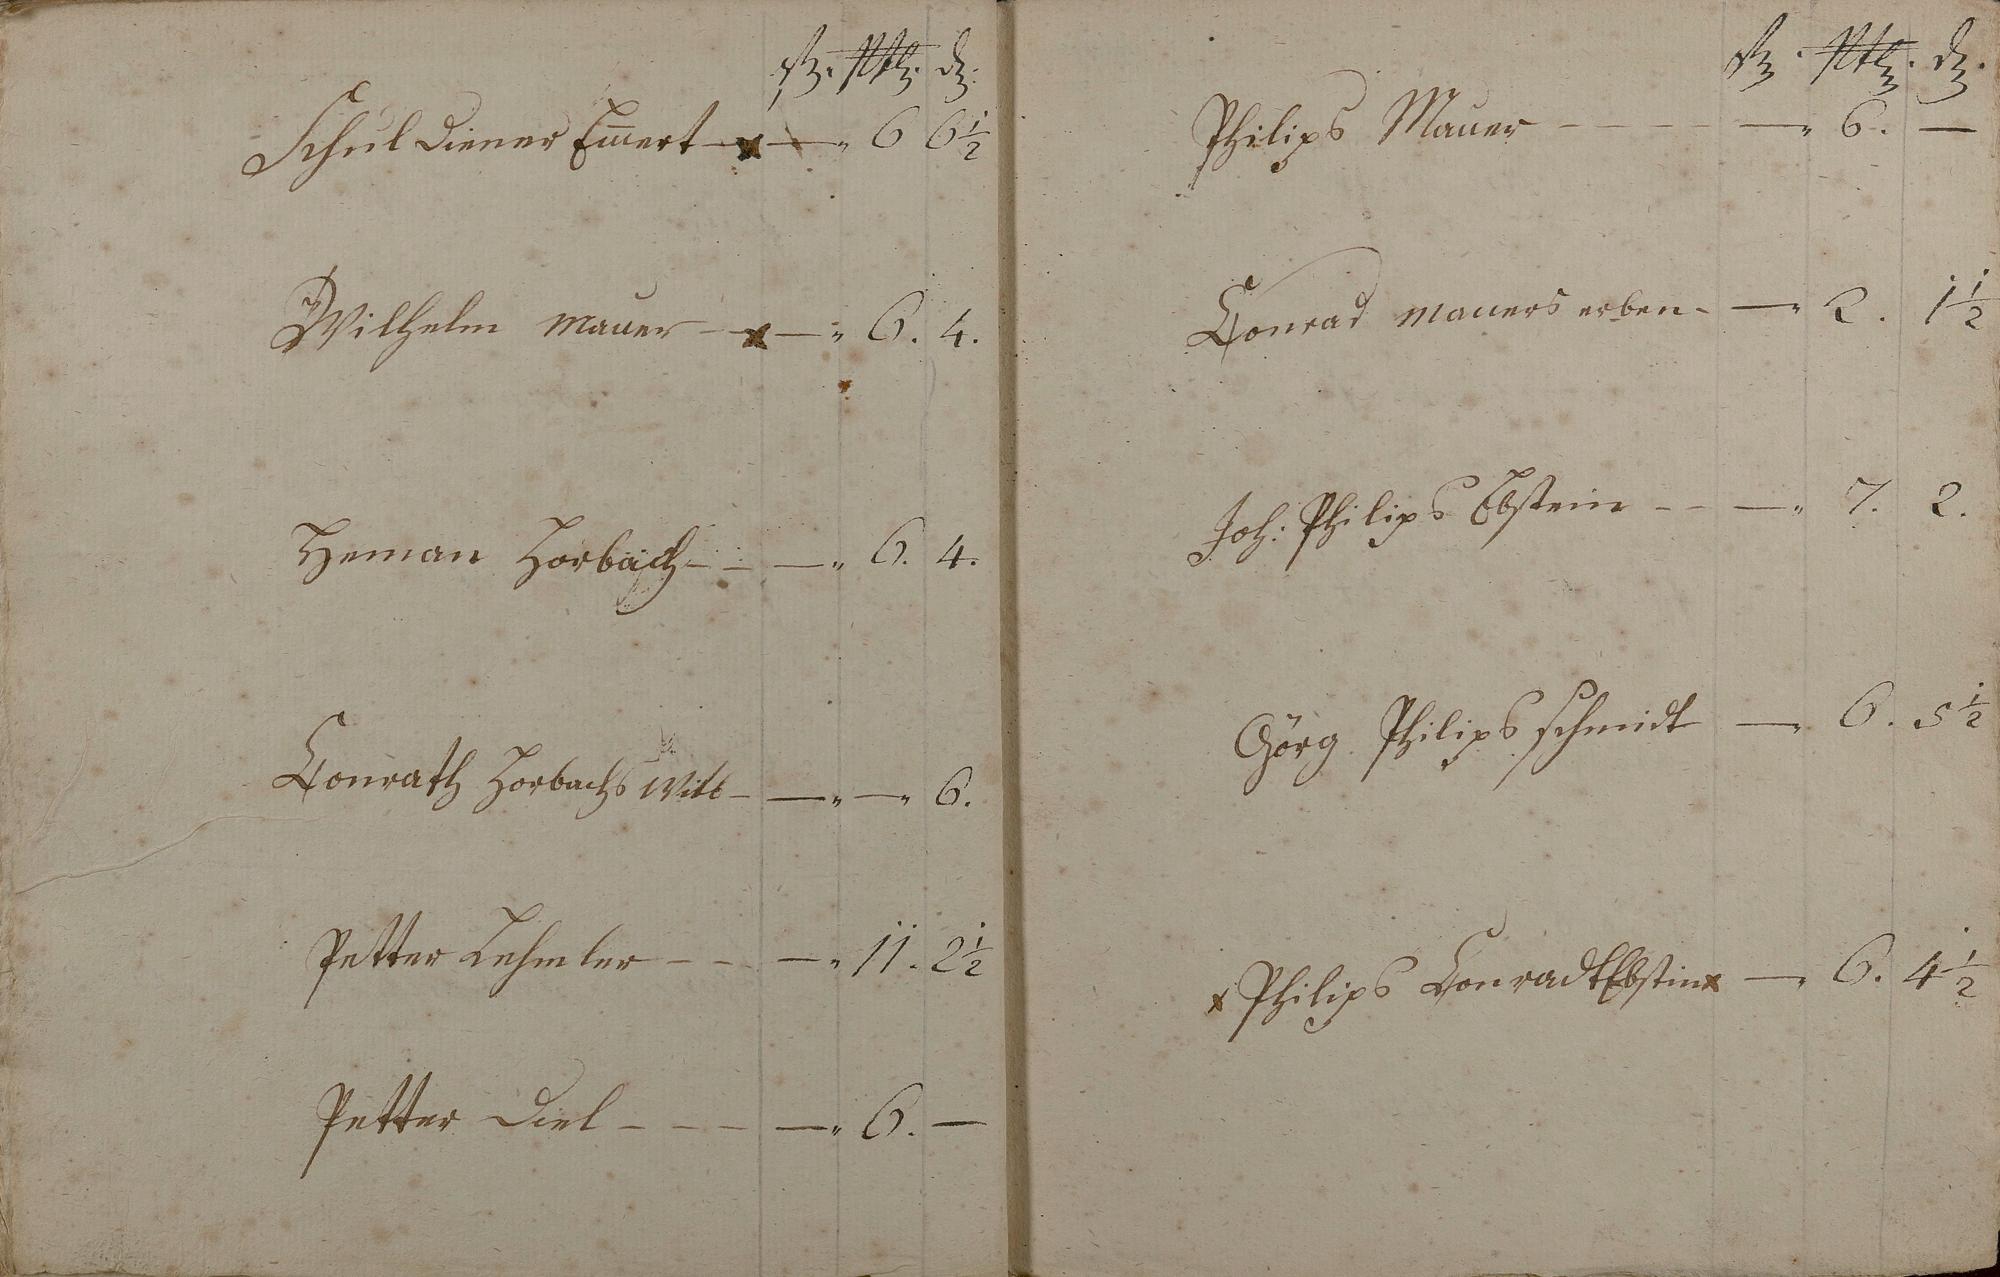 Schul diener Em̅ert — x — " 6 6½
Wilhelm Mauer — x — " 6. 4.
Heman Horbach — — — " 6. 4.
Conrath Horbachs Witt — — " — " 6.
Petter Lehmler — — — " 11. 2½
Petter Diel — — — — " 6. —
Philips Mauer — — — — " 6. —
Conrad Mauers erben — — " 2. 1½
Joh: Philips Ebstein — — — " 7. 2.
Görg Philips Schmidt — " 6. 5½
x Philips Conradt Ebstin x — " 6. 4½